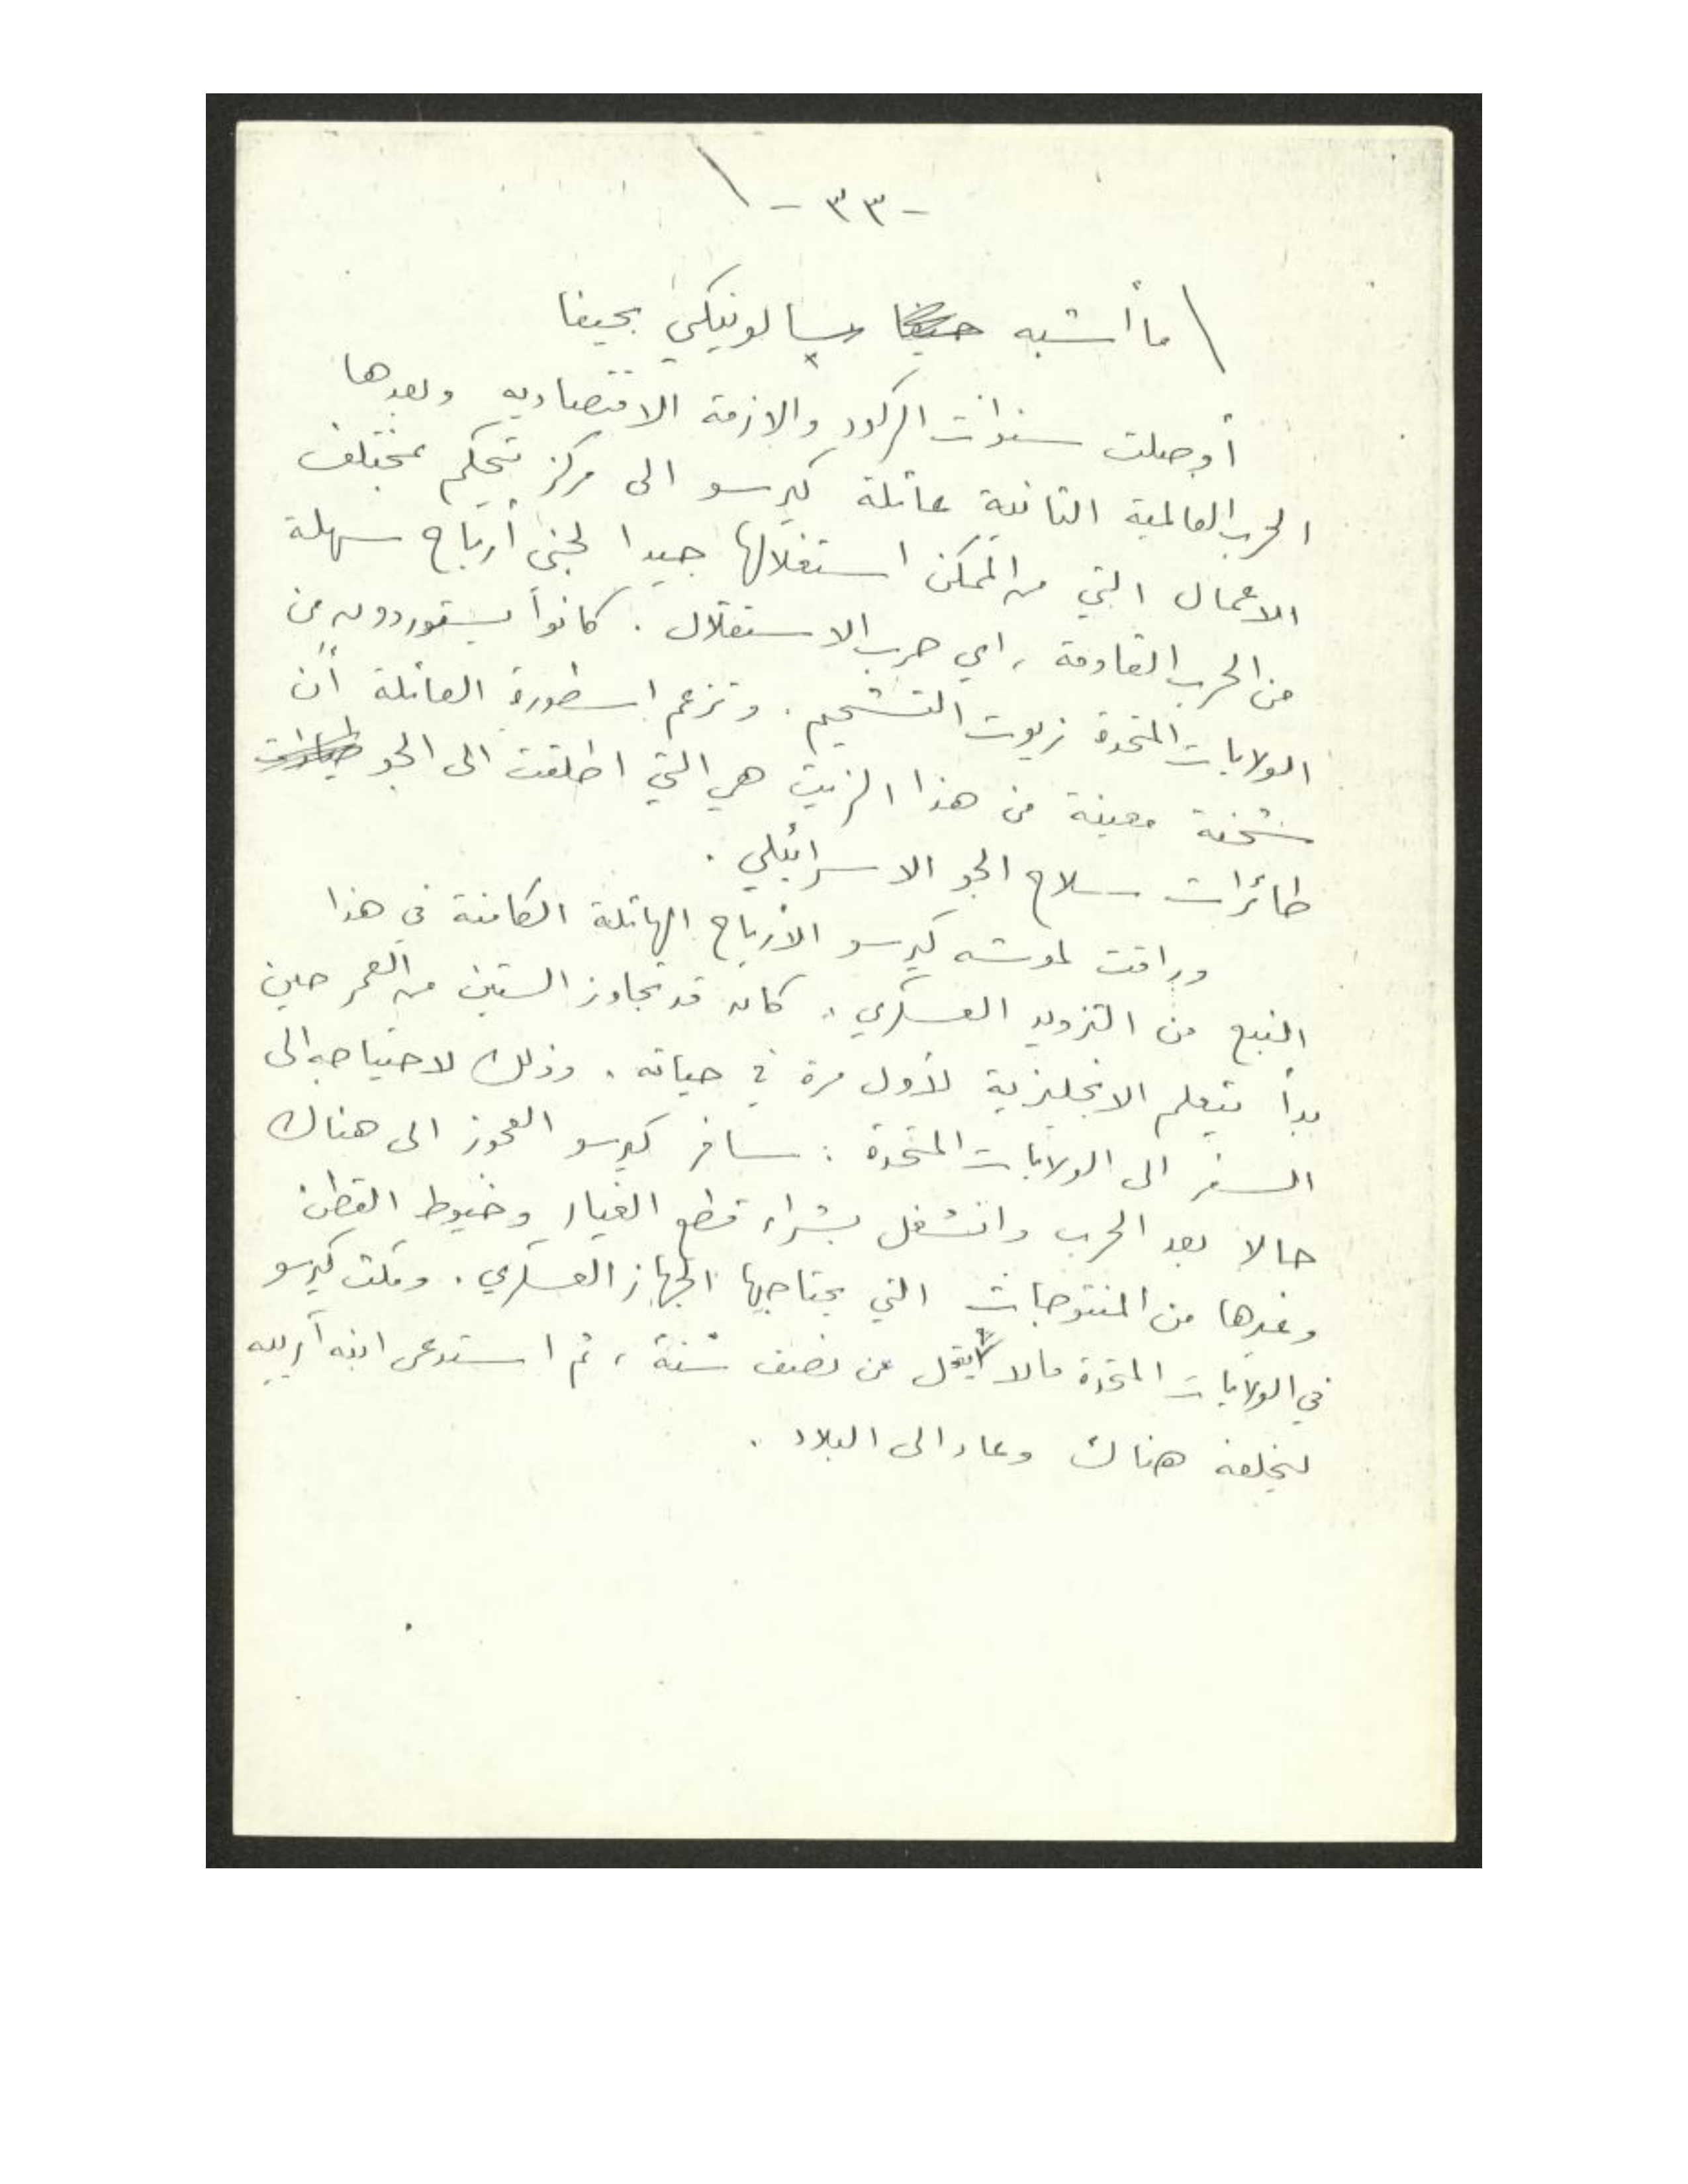 - ٣٣ -
ما أشبه سالونيكي بحيفا
أوصلت سنوات الركود والازمة الاقتصاديه وبعدها
الحرب العالمية الثانية عائلة كرسو الى مركز تحكم بمختلف
الاعمال التي من الممكن استغلالها جيدا لجني أرباح سهلة
من الحرب القادمة ، اي حرب الاستقلال . كانوا يستوردون من
الولايات المتحدة زيوت التشحيم . وتزعم اسطورة العائلة أن
شحنة معينة من هذا الزيت هي التي اطلقت الى الجو
طائرات سلاح الجو الاسرائيلي .
وراقت لموشه كرسو الأرباح الهائلة الكامنة في هذا
النبع من التزويد العسكري . كان قد تجاوز الستين من العمر حين
بدأ يتعلم الانجليزية لأول مرة في حياته . وذلك لاحتياجه الى
السفر الى الولايات المتحدة : سافر كرسو العجوز الى هناك
حالا بعد الحرب وانشغل بشراء قطع الغيار وخيوط القطن
وغيرها من المنتوجات التي يحتاجها الجهاز العسكري . ومكث كرسو
في الولايات المتحدة ما لا يقل عن نصف سنة ، ثم استدعى ابنه آرييه
ليخلفه هناك وعاد الى البلاد .